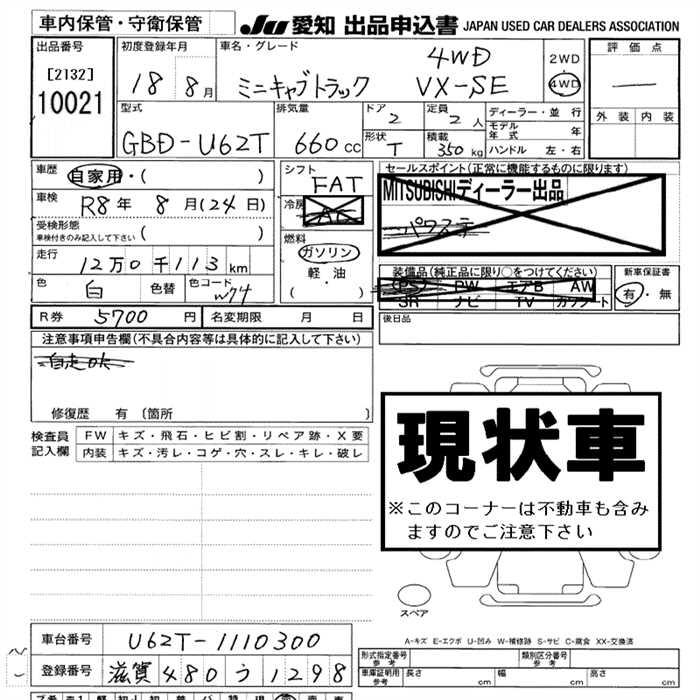 車内保管・守衛保管
JU 愛知 出品申込書 JAPAN USED CAR DEALERS ASSOCIATION
出品番号
[2132]
10021
初度登録年月
18 8月
車名・グレード
4WD
ミニキャブトラック VX-SE
2WD
4WD
評価点
—
外装 内装
型式
GBD-U62T
排気量
660cc
ドア
2
定員
2人
形状
T
積載
350kg
ディーラー・並行
モデル年式 年
ハンドル 左・右
車歴
自家用・( )
車検
R8年 8月(24日)
受検形態
車検付きのみ記入して下さい ( )
走行
12万0千113km
色
白
色替
色コード
W74
シフト
FAT
冷房
AC
燃料
ガソリン
軽・油
( )
セールスポイント(正常に機能するものに限ります)
MITSUBISHIディーラー出品
パワステ
装備品(純正品に限り○をつけてください)
(PS) PW エアB AW
SR ナビ TV カワシート
新車保証書
有・無
R券 5700円
名変期限 月 日
後日品
注意事項申告欄(不具合内容等は具体的に記入して下さい)
自走OK
修復歴 有〔箇所 〕
検査員
記入欄
FW キズ・飛石・ヒビ割・リペア跡・X要
内装 キズ・汚レ・コゲ・穴・スレ・キレ・破レ
現状車
※このコーナーは不動車も含み
ますのでご注意下さい
スペア
A-キズ E-エクボ U-凹み W-補修跡 S-サビ C-腐食 XX-交換済
車台番号 U62T-1110300
登録番号 滋賀 480 う 1298
形式指定番号
参考
類別区分番号
参考
車庫証明用
参考
長さ cm 幅 cm 高さ cm